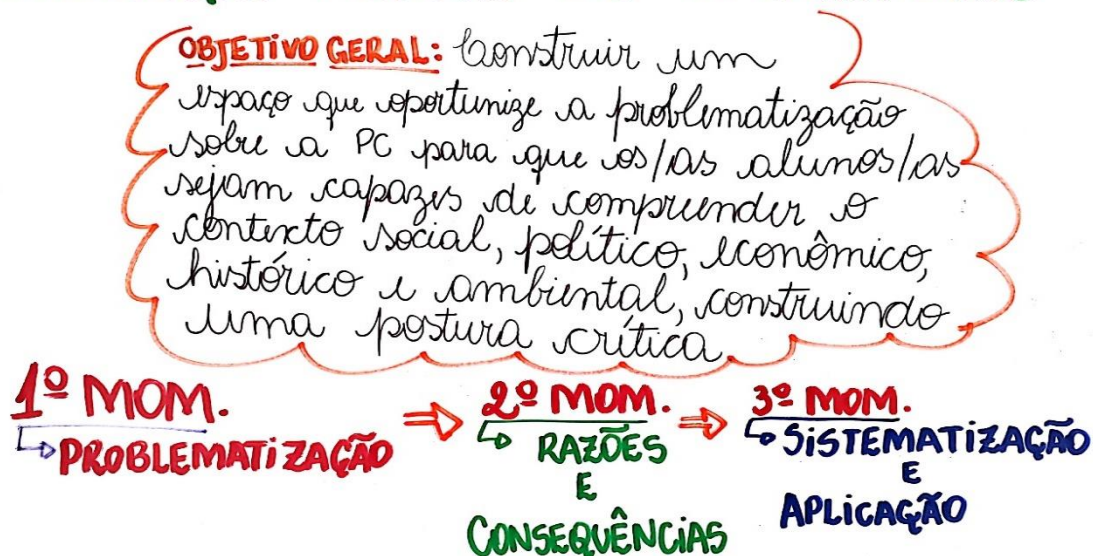 OBJETIVO GERAL: Construir um
espaço que oportunize a problematização
sobre a PC para que os/as alunos/as
sejam capazes de compreender o
contexto social, político, econômico,
histórico e ambiental, construindo
uma postura crítica.
1º MOM. ⇒ 2º MOM. ⇒ 3º MOM.
↳ PROBLEMATIZAÇÃO ↳ RAZÕES ↳ SISTEMATIZAÇÃO
E E
CONSEQUÊNCIAS APLICAÇÃO